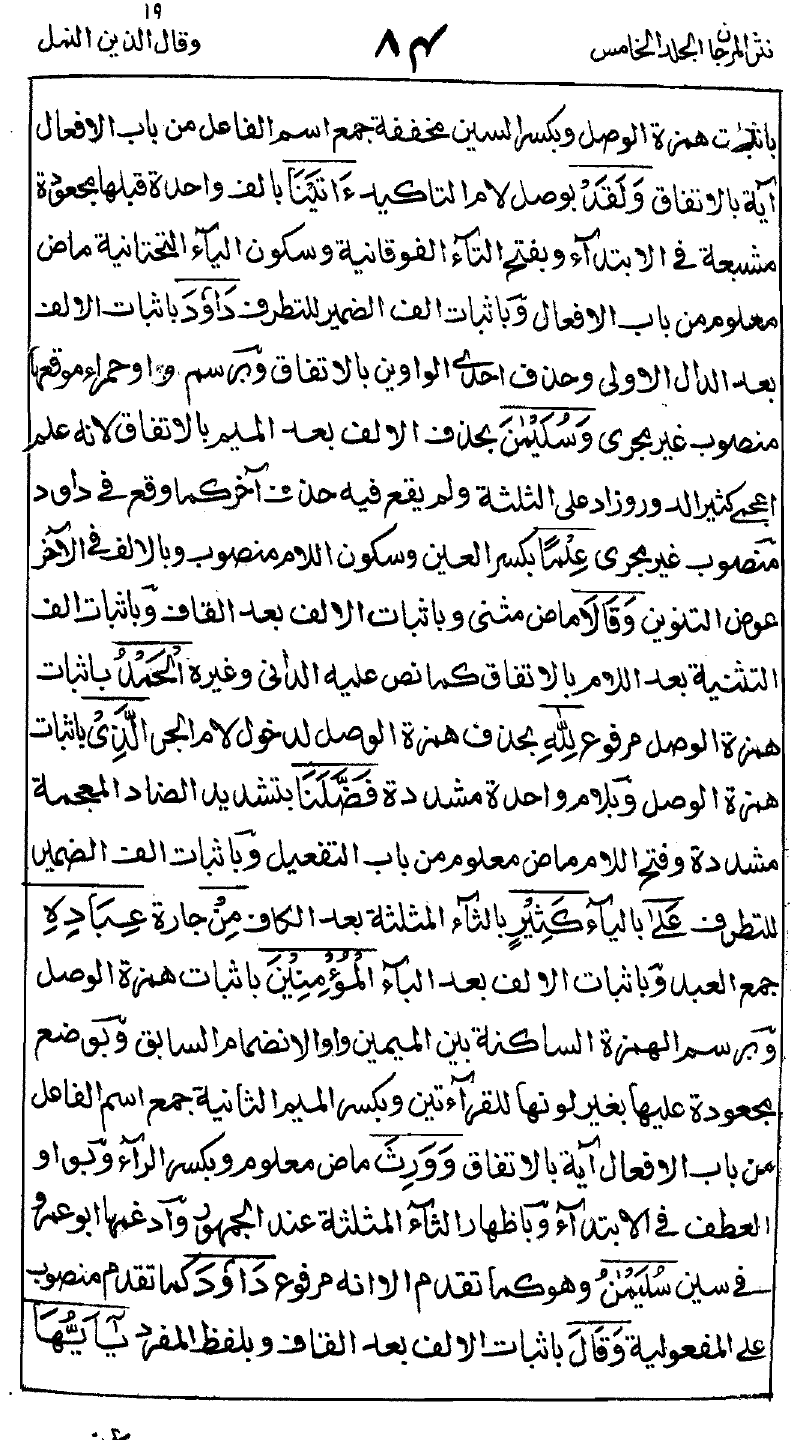 نثر المرجان الجلد الخامس
٨٤
١٩
وقال الذين النمل
باثبات همزة الوصل وبكسر السين مخففة جمع اسم الفاعل من باب الافعال
آية بالاتفاق وَلَقَدْ بوصل لام التاكيد ءَاتَيْنَا بالف واحدة قبلها مجعودة
مشبعة في الابتدآء وبفتح التآء الفوقانية وسكون اليآء التحتانية ماض
معلوم من باب الافعال وباثبات الف الضمير للتطرف دَاوٗدَ باثبات الالف
بعد الدال الاولى وحذف احدى الواوين بالاتفاق وبرسم واو حمراء موقعها
منصوب غير مجرى وَسُلَيْمٰنَ بحذف الالف بعد الميم بالاتفاق لانه علم
اعجمي كثير الدور وزاد على الثلثة ولم يقع فيه حذف آخر كما وقع في داود
منصوب غير مجرى عِلْمًا بكسر العين وسكون اللام منصوب وبالالف في الآخر
عوض التنوين وَقَالَا ماض مثنى وباثبات الالف بعد القاف وباثبات الف
التثنية بعد اللام بالاتفاق كما نص عليه الداني وغيره الْحَمْدُ باثبات
همزة الوصل مرفوع لِلّٰهِ بحذف همزة الوصل لدخول لام الجر الَّذِىْ باثبات
همزة الوصل وبلام واحدة مشددة فَضَّلَنَا بتشديد الضاد المعجمة
مشددة وفتح اللام ماض معلوم من باب التفعيل وباثبات الف الضمير
للتطرف عَلٰى باليآء كَثِيْرٍ بالثآء المثلثة بعد الكاف مِنْ جارة عِبَادِهِ
جمع العبد وباثبات الالف بعد البآء الْمُؤْمِنِيْنَ باثبات همزة الوصل
وبرسم الهمزة الساكنة بين الميمين واوا لانضمام السابق وبوضع
مجعودة عليها بغير لونها للقرآءتين وبكسر الميم الثانية جمع اسم الفاعل
من باب الافعال آية بالاتفاق وَوَرِثَ ماض معلوم وبكسر الرآء وبواو
العطف في الابتدآء وباظهار الثآء المثلثة عند الجمهور وادغمها ابو عمرو
في سين سُلَيْمٰنُ وهو كما تقدم الا انه مرفوع دَاوٗدَ كما تقدم منصوب
على المفعولية وَقَالَ باثبات الالف بعد القاف وبلفظ المفرد يٰٓاَيُّهَا